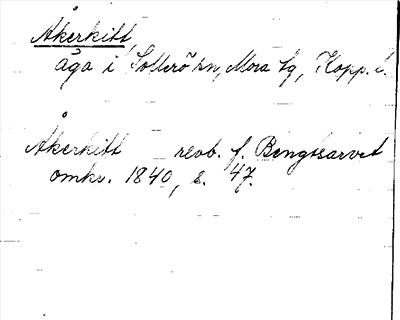 Åkerkitt
äga i Sollerö sn, Mora tg, Kopp. l.
Åkerkitt reob. f. Bengtsarvet
omkr. 1840, s. 47.